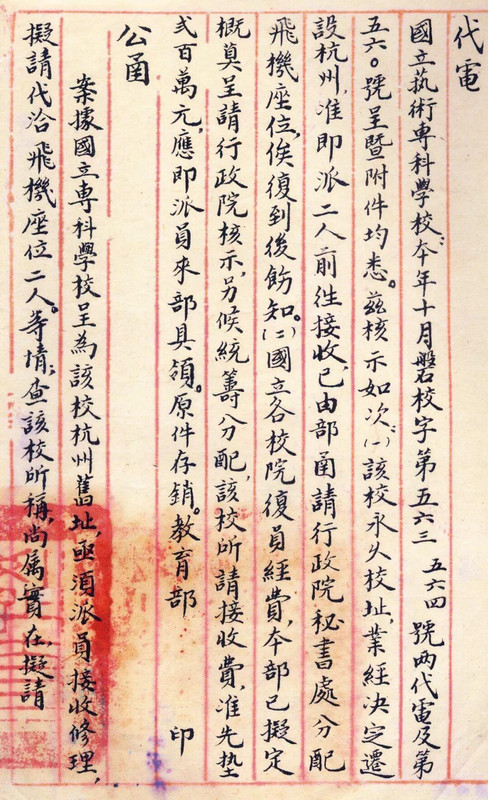 代電
國立執術專科學校：本年十月磐校字第五六三 五六四 號兩代電及第
五六〇號呈暨附件均悉。茲核示如次：㈠該校永久校址，業經決定遷
設杭州，准即派二人前往接收，已由部函請行政院秘書處分配
飛機座位，俟復到後飭知。㈡國立各校院復員經費，本部已擬定
概算呈請行政院核示，另候統籌分配，該校所請接收費，准先墊
弍百萬元，應即派員來部具領。原件存銷。教育部 印
公函
案據國立專科學校呈為該校杭州舊址，亟須派員接收修理，
擬請代洽飛機座位二人。等情；查該校所稱，尚屬實在，擬請